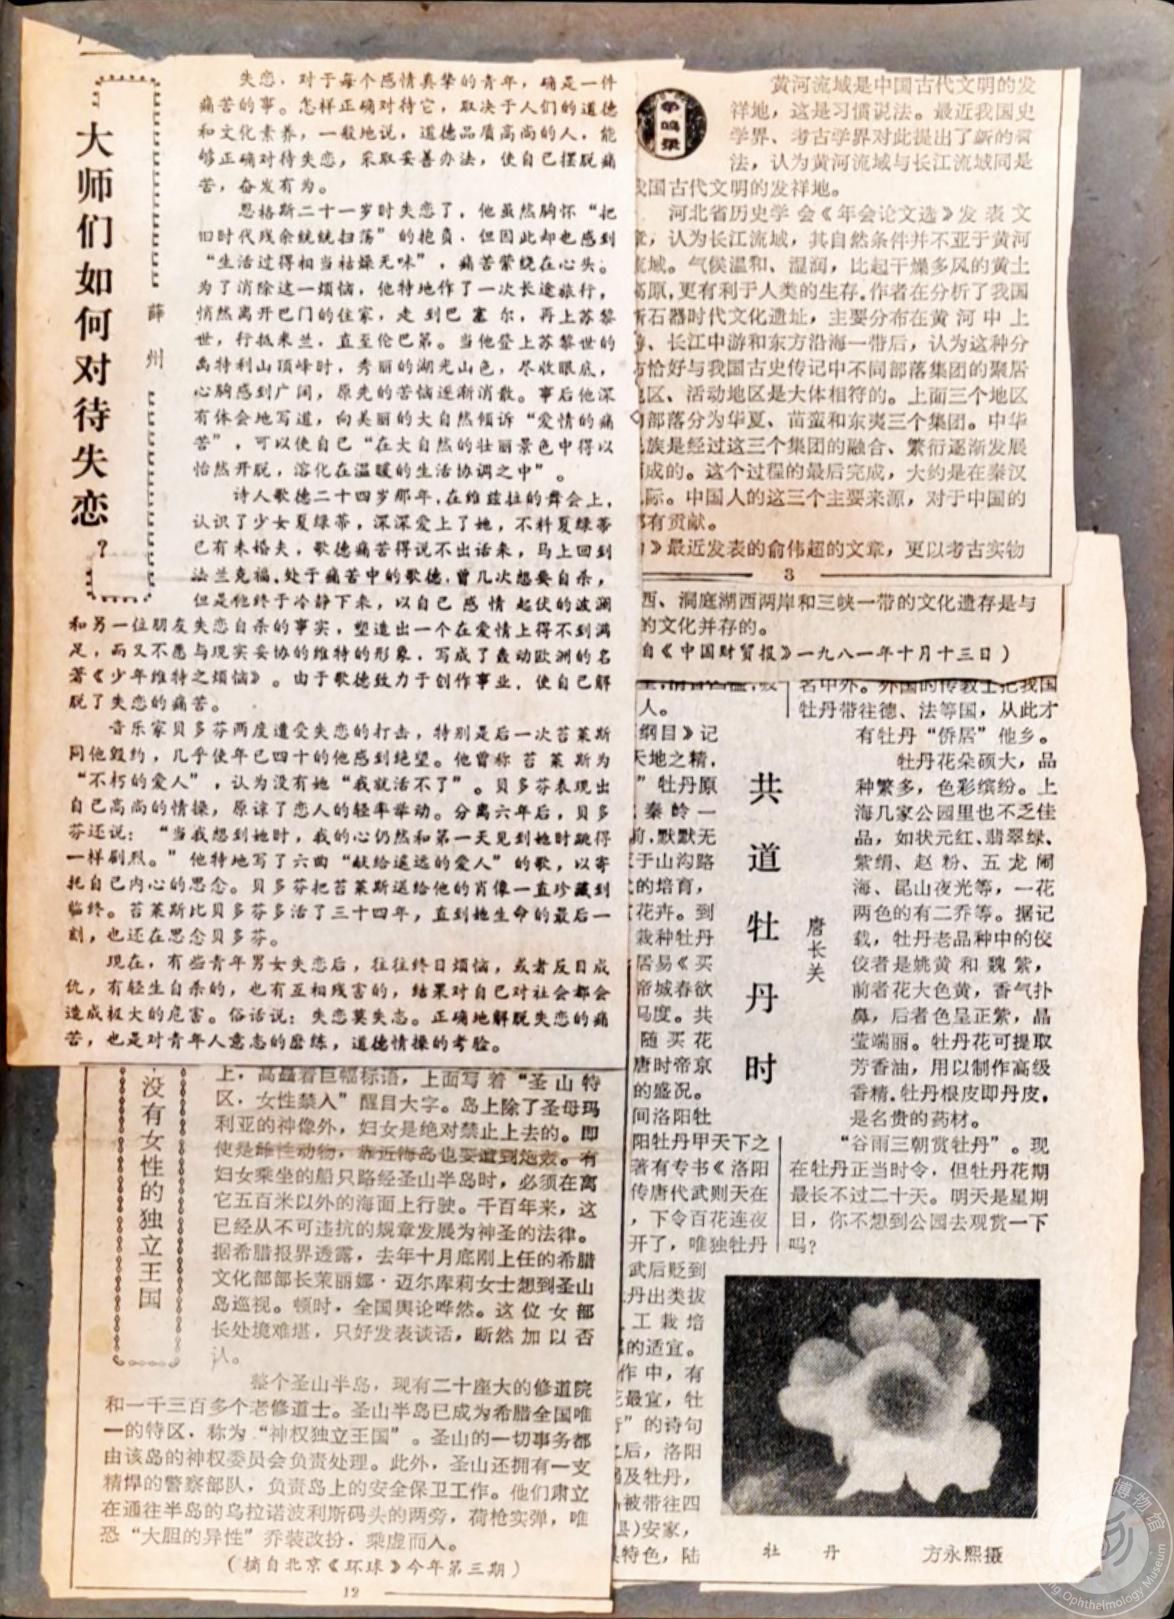 大师们如何对待失恋？
薛州
失恋，对于每个感情真挚的青年，确是一件
痛苦的事。怎样正确对待它，取决于人们的道德
和文化素养，一般地说，道德品质高尚的人，能
够正确对待失恋，采取妥善办法，使自己摆脱痛
苦，奋发有为。
恩格斯二十一岁时失恋了，他虽然胸怀“把
旧时代残余统统扫荡”的抱负，但因此却也感到
“生活过得相当枯燥无味”，痛苦萦绕在心头。
为了消除这一烦恼，他特地作了一次长途旅行，
悄然离开巴门的住家，走到巴塞尔，再上苏黎
世，行抵米兰，直至伦巴第。当他登上苏黎世的
禹特利山顶峰时，秀丽的湖光山色，尽收眼底，
心胸感到广阔，原先的苦恼逐渐消散。事后他深
有体会地写道，向美丽的大自然倾诉“爱情的痛
苦”，可以使自己“在大自然的壮丽景色中得以
怡然开脱，溶化在温暖的生活协调之中”。
诗人歌德二十四岁那年，在维兹拉的舞会上，
认识了少女夏绿蒂，深深爱上了她，不料夏绿蒂
已有未婚夫，歌德痛苦得说不出话来，马上回到
法兰克福。处于痛苦中的歌德，曾几次想要自杀，
但是他终于冷静下来，以自己感情起伏的波澜
和另一位朋友失恋自杀的事实，塑造出一个在爱情上得不到满
足，而又不愿与现实妥协的维特的形象，写成了轰动欧洲的名
著《少年维特之烦恼》。由于歌德致力于创作事业，使自己解
脱了失恋的痛苦。
音乐家贝多芬两度遭受失恋的打击，特别是后一次苔莱斯
同他毁约，几乎使年已四十的他感到绝望。他曾称苔莱斯为
“不朽的爱人”，认为没有她“我就活不了”。贝多芬表现出
自己高尚的情操，原谅了恋人的轻率举动。分离六年后，贝多
芬还说：“当我想到她时，我的心仍然和第一天见到她时跳得
一样剧烈。”他特地写了六曲“献给遥远的爱人”的歌，以寄
托自己内心的思念。贝多芬把苔莱斯送给他的肖像一直珍藏到
临终。苔莱斯比贝多芬多活了三十四年，直到她生命的最后一
刻，也还在思念贝多芬。
现在，有些青年男女失恋后，往往终日烦恼，或者反目成
仇，有轻生自杀的，也有互相残害的，结果对自己对社会都会
造成极大的危害。俗话说：失恋莫失态。正确地解脱失恋的痛
苦，也是对青年人意志的磨练，道德情操的考验。
争鸣录
黄河流域是中国古代文明的发
祥地，这是习惯说法。最近我国史
学界、考古学界对此提出了新的看
法，认为黄河流域与长江流域同是
我国古代文明的发祥地。
河北省历史学会《年会论文选》发表文
章，认为长江流域，其自然条件并不亚于黄河
流域。气候温和、湿润，比起干燥多风的黄土
高原，更有利于人类的生存。作者在分析了我国
新石器时代文化遗址，主要分布在黄河中上
、长江中游和东方沿海一带后，认为这种分
布恰好与我国古史传记中不同部落集团的聚居
地区、活动地区是大体相符的。上面三个地区
部落分为华夏、苗蛮和东夷三个集团。中华
民族是经过这三个集团的融合、繁衍逐渐发展
而成的。这个过程的最后完成，大约是在秦汉
之际。中国人的这三个主要来源，对于中国的
都有贡献。
》最近发表的俞伟超的文章，更以考古实物
3
西、洞庭湖西两岸和三峡一带的文化遗存是与
的文化并存的。
自《中国财贸报》一九八一年十月十三日）
共道牡丹时
唐长关
人。
纲目》记
天地之精，
”牡丹原
秦岭一
前，默默无
于山沟路
的培育，
花卉。到
栽种牡丹
居易《买
帝城春欲
马度。共
随买花
唐时帝京
的盛况。
间洛阳牡
阳牡丹甲天下之
著有专书《洛阳
传唐代武则天在
，下令百花连夜
开了，唯独牡丹
武后贬到
丹出类拔
工栽培
的适宜。
作中，有
花最宜，牡
”的诗句
之后，洛阳
及牡丹，
被带往四
县)安家，
特色，陆
名中外。外国的传教士把我国
牡丹带往德、法等国，从此才
有牡丹“侨居”他乡。
牡丹花朵硕大，品
种繁多，色彩缤纷。上
海几家公园里也不乏佳
品，如状元红、翡翠绿、
紫绢、赵粉、五龙闹
海、昆山夜光等，一花
两色的有二乔等。据记
载，牡丹老品种中的佼
佼者是姚黄和魏紫，
前者花大色黄，香气扑
鼻，后者色呈正紫，晶
莹端丽。牡丹花可提取
芳香油，用以制作高级
香精。牡丹根皮即丹皮，
是名贵的药材。
“谷雨三朝赏牡丹”。现
在牡丹正当时令，但牡丹花期
最长不过二十天。明天是星期
日，你不想到公园去观赏一下
吗？
牡丹 方永熙摄
没有女性的独立王国
上，高矗着巨幅标语，上面写着“圣山特
区，女性禁入”醒目大字。岛上除了圣母玛
利亚的神像外，妇女是绝对禁止上去的。即
使是雌性动物，靠近海岛也要遭到炮轰。有
妇女乘坐的船只路经圣山半岛时，必须在离
它五百米以外的海面上行驶。千百年来，这
已经从不可违抗的规章发展为神圣的法律。
据希腊报界透露，去年十月底刚上任的希腊
文化部部长茉丽娜·迈尔库莉女士想到圣山
岛巡视。顿时，全国舆论哗然。这位女部
长处境难堪，只好发表谈话，断然加以否
认。
整个圣山半岛，现有二十座大的修道院
和一千三百多个老修道士。圣山半岛已成为希腊全国唯
一的特区，称为“神权独立王国”。圣山的一切事务都
由该岛的神权委员会负责处理。此外，圣山还拥有一支
精悍的警察部队，负责岛上的安全保卫工作。他们肃立
在通往半岛的乌拉诺波利斯码头的两旁，荷枪实弹，唯
恐“大胆的异性”乔装改扮，乘虚而入。
（摘自北京《环球》今年第三期）
12
博物馆
Ophthalmology Museum